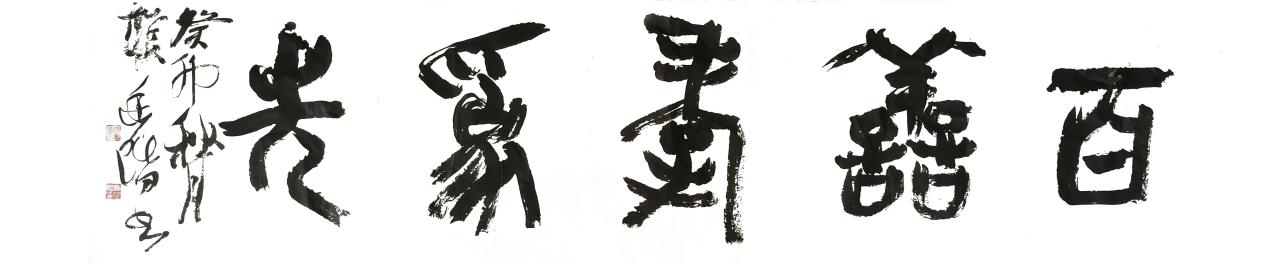 百善孝為先
癸卯秋月
书